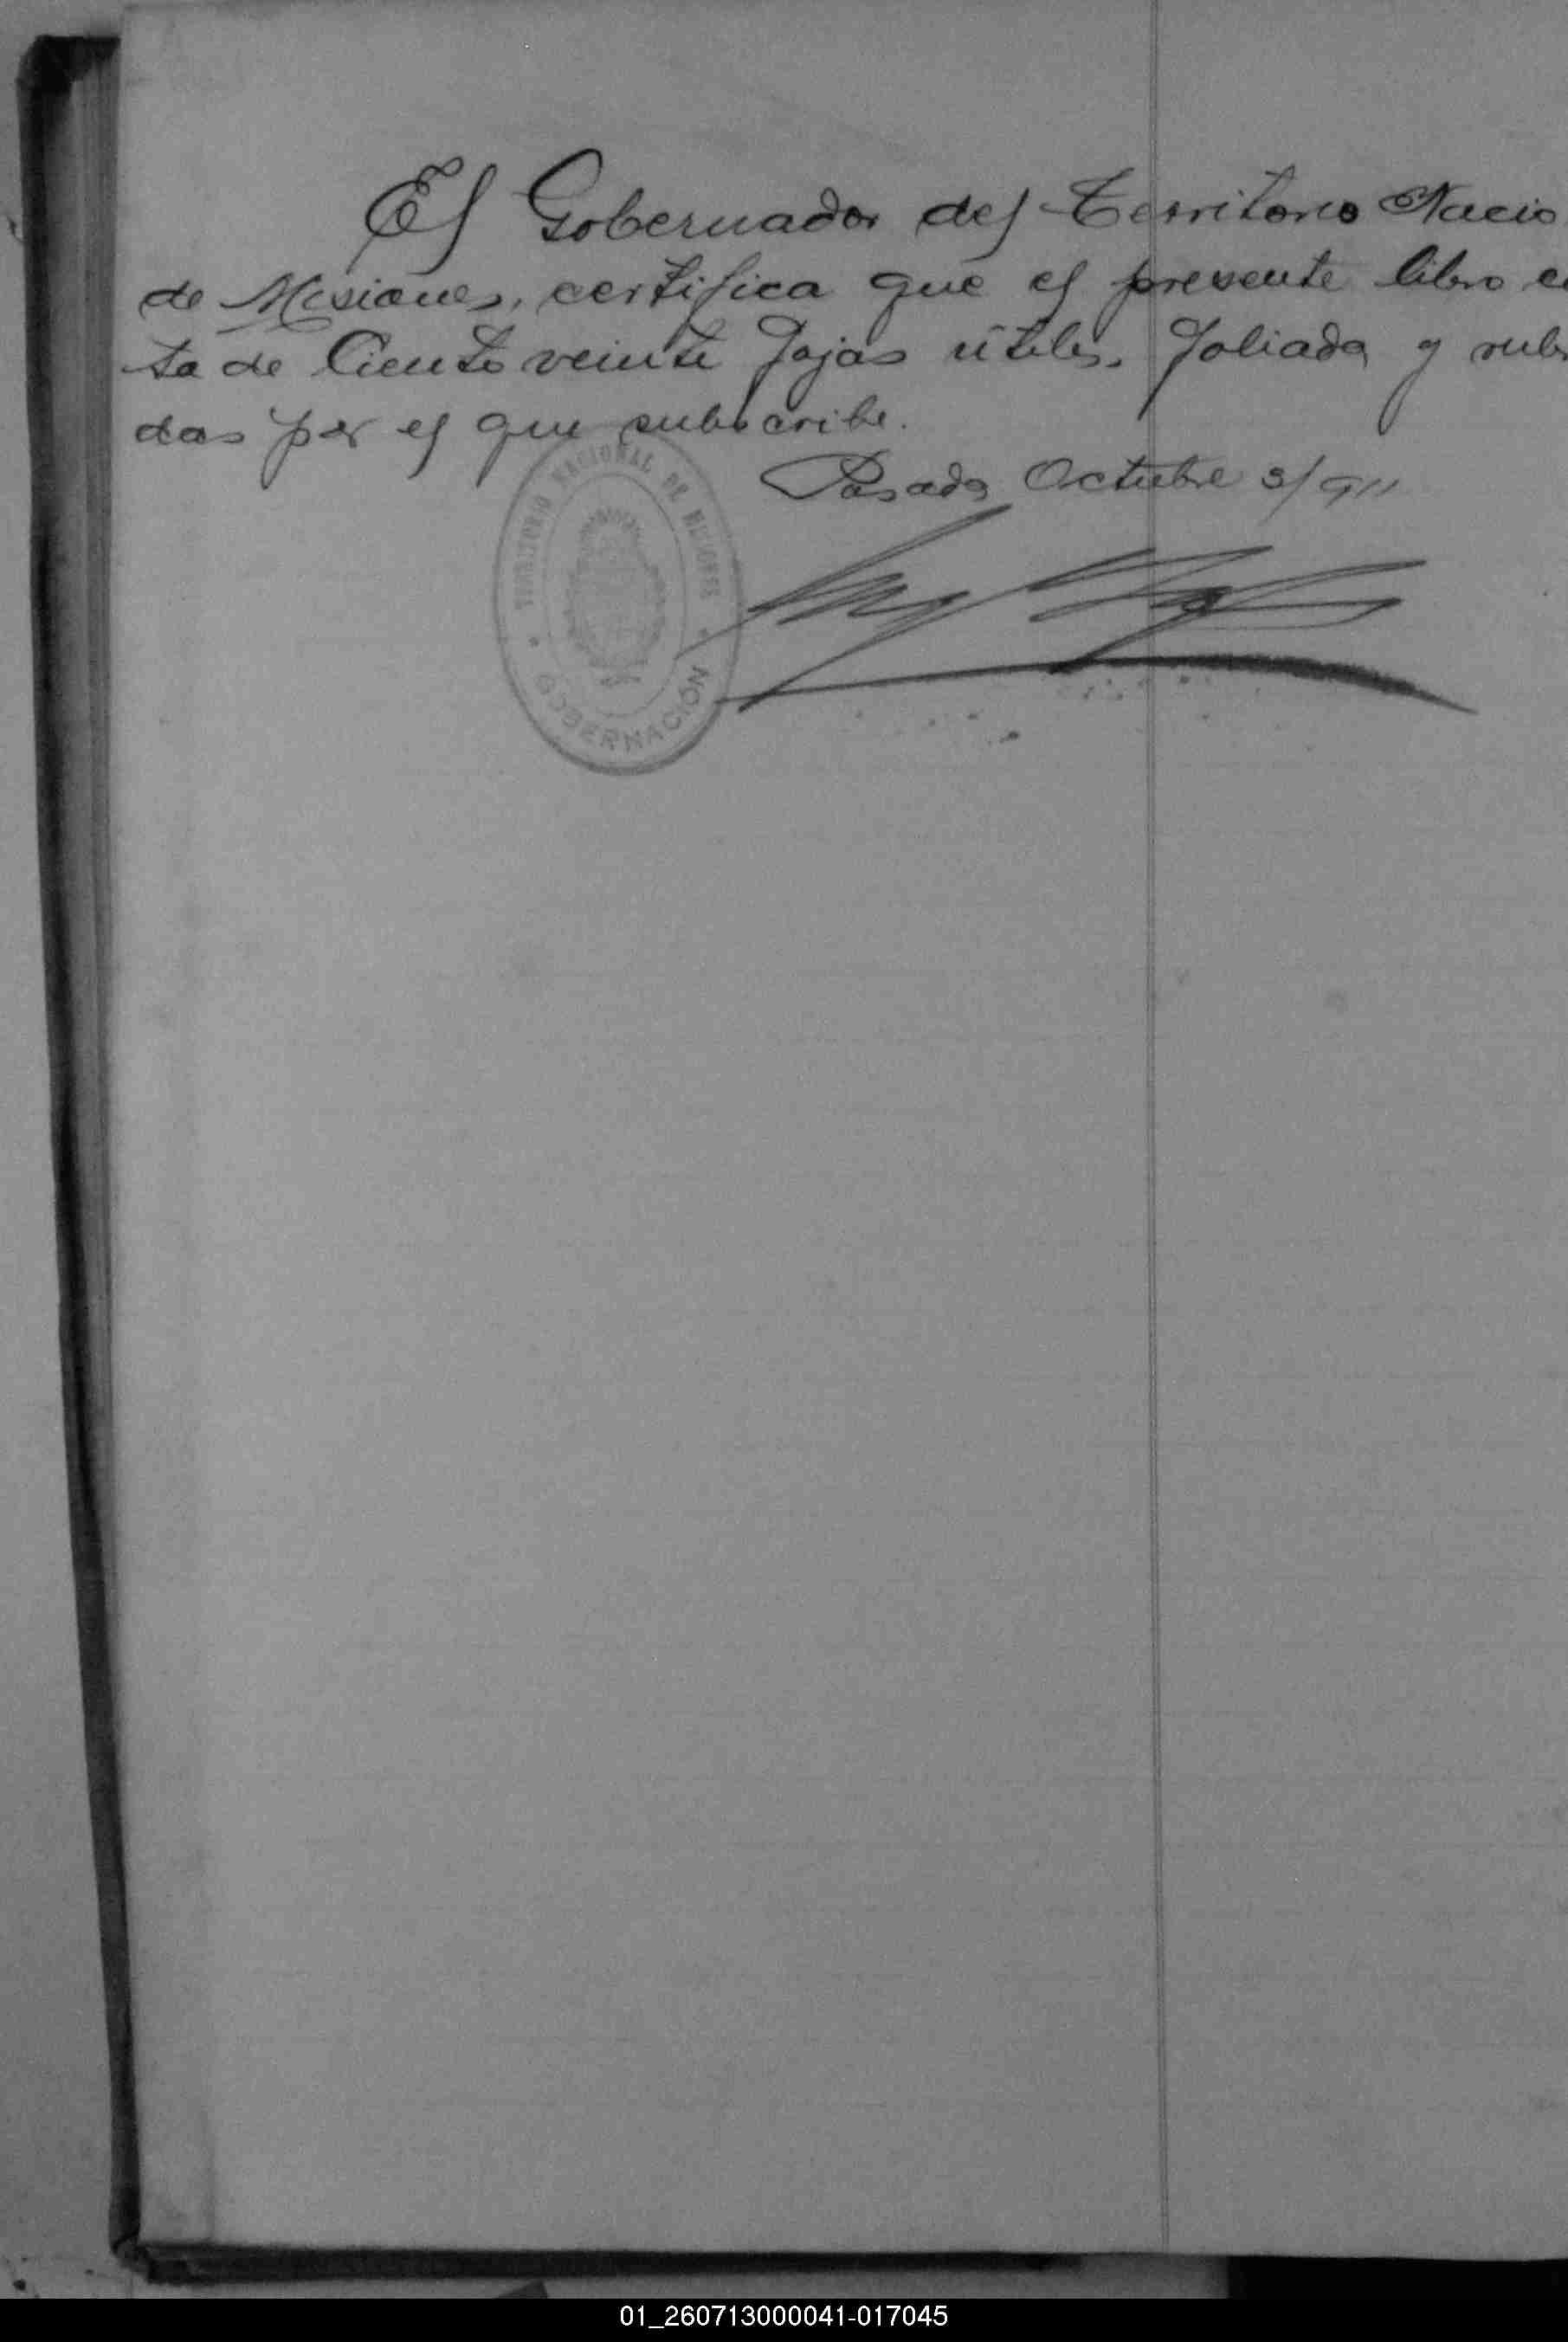 El Gobernador del Territorio Nacio
de Misiones, certifica que el presente libro c
ta de Ciento veinte fojas útiles, foliada y rub
das por el que subscribe.
Posadas Octubre 3/911
TERRITORIO NACIONAL DE MISIONES
GOBERNACIÓN
01_260713000041-017045